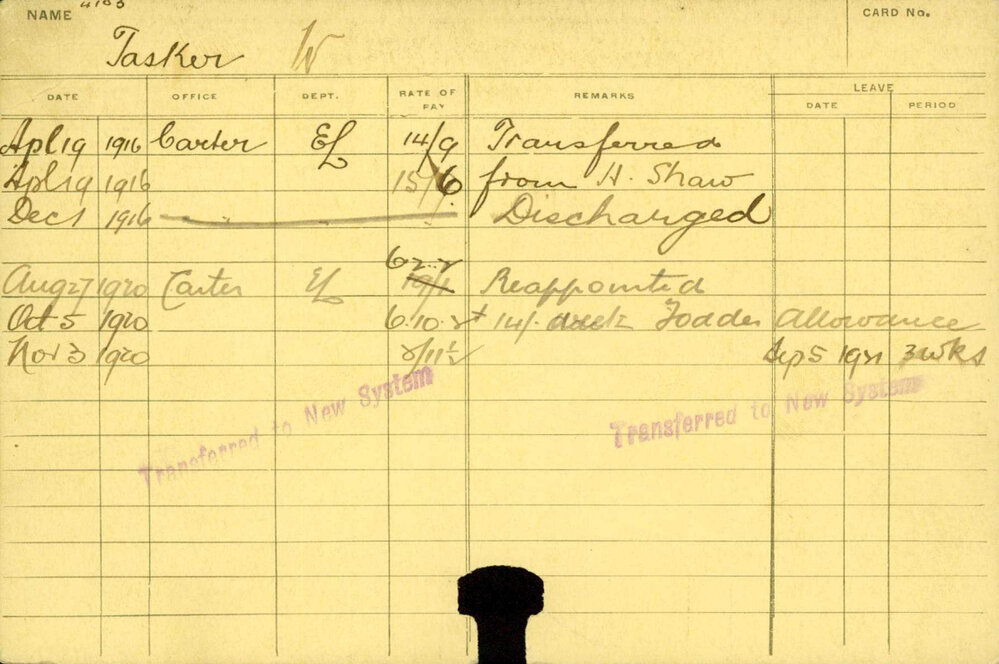 NAME
CARD No.
Tasker W
DATE OFFICE DEPT. RATE OF PAY REMARKS LEAVE
DATE PERIOD
Apl 19 1916 Carter EL 14/9 Transferred
Apl 19 1916 15/6 from H. Shaw
Dec 1 1916 Discharged
Aug 27 1920 Carter EL Reappointed
Oct 5 1920 14/. Fodder Allowance
Nov 3 1920 2/11½ Sep 5 1921 3 wks
Transferred to New System
Transferred to New System